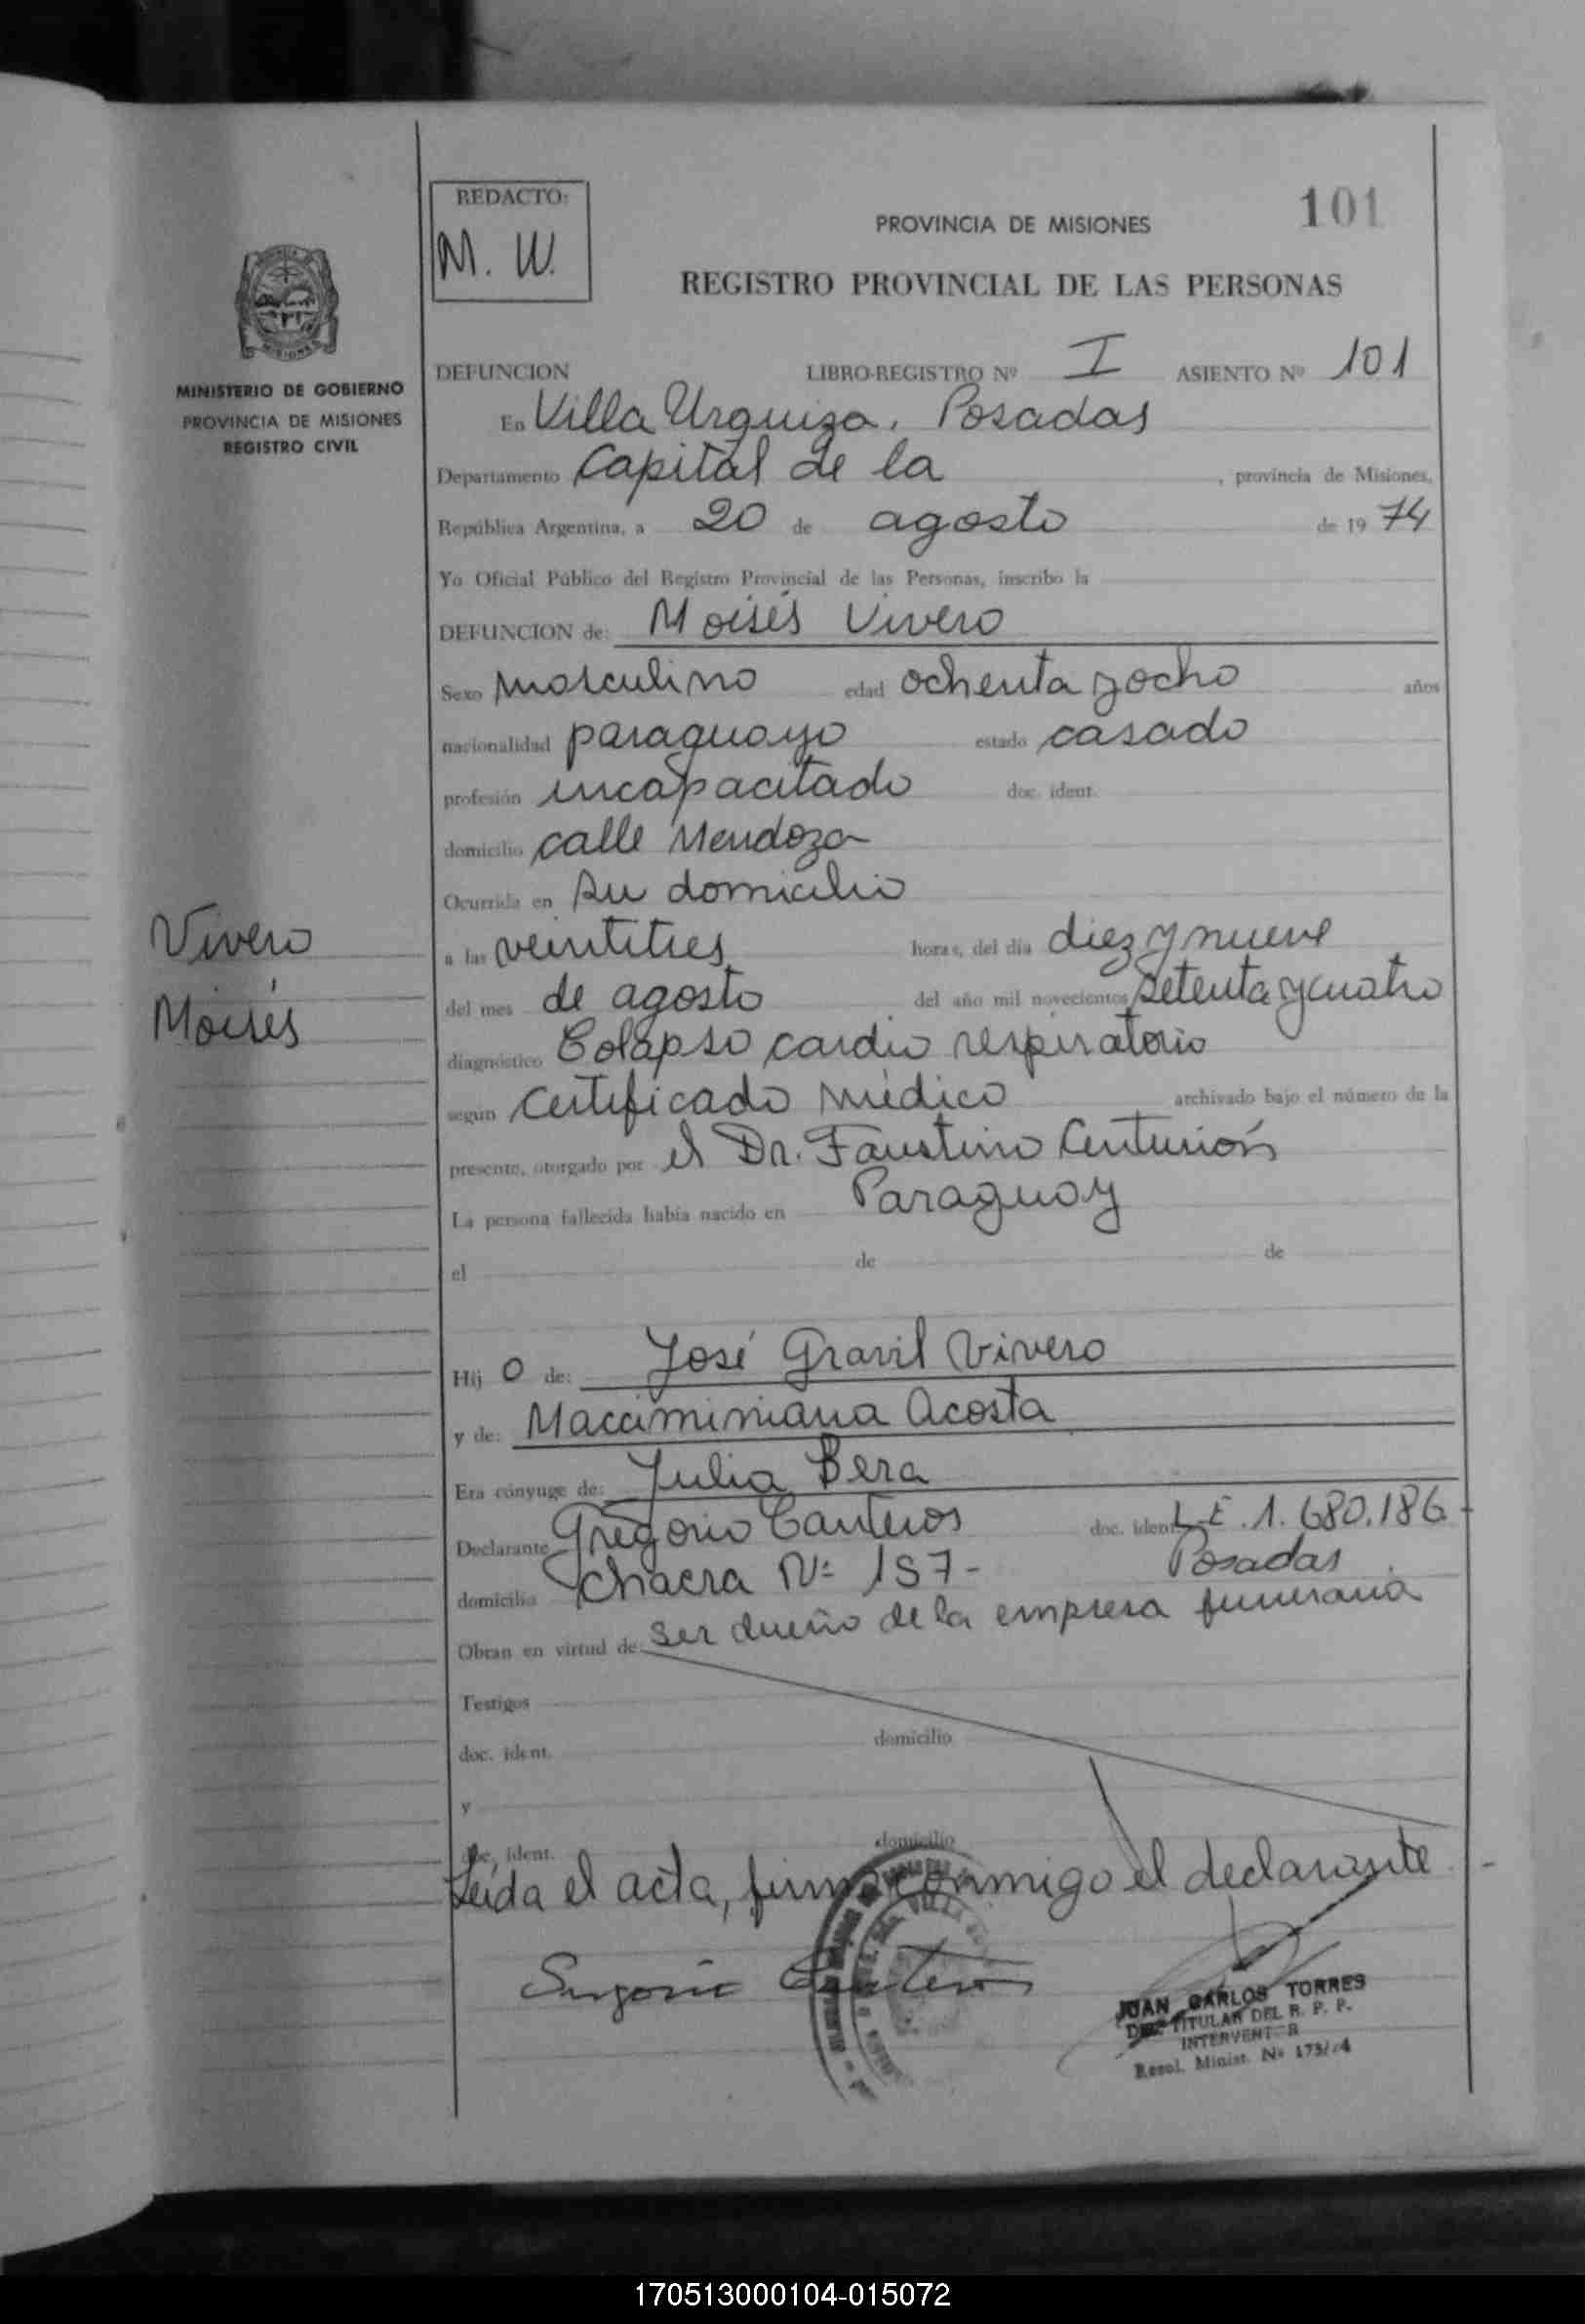 REDACTO:
M. W.
PROVINCIA DE MISIONES
101
REGISTRO PROVINCIAL DE LAS PERSONAS
MINISTERIO DE GOBIERNO
PROVINCIA DE MISIONES
REGISTRO CIVIL
DEFUNCION LIBRO-REGISTRO Nº I ASIENTO Nº 101
En Villa Urquiza. Posadas
Departamento Capital de la , provincia de Misiones,
República Argentina, a 20 de agosto de 1974
Yo Oficial Público del Registro Provincial de las Personas, inscribo la
DEFUNCION de: Moisés Vivero
Sexo masculino edad ochenta y ocho años
nacionalidad paraguayo estado casado
profesión incapacitado doc. ident.
domicilio calle Mendoza
Ocurrida en su domicilio
Vivero
Moisés
a las veintitres horas, del día diez y nueve
del mes de agosto del año mil novecientos setenta y cuatro
diagnóstico Colapso cardio respiratorio
según Certificado Médico archivado bajo el número de la
presente, otorgado por el Dr. Faustino Centurión
La persona fallecida había nacido en Paraguay
el de de
Hij o de: José Gravil Vivero
y de: Macciminiana Acosta
Era cónyuge de: Julia Bera
Declarante Gregorio Canteros doc. ident. L.E. 1.680.186
domicilio Chacra Nº 157- Posadas
Obran en virtud de ser dueño de la empresa funeraria
Testigos
doc. ident. domicilio
y
doc. ident. domicilio
Leída el acta, firma conmigo el declarante
JUAN CARLOS TORRES
TITULAR DEL R. P. P.
INTERVENTOR
Resol. Minist. Nº
MISIONES
170513000104-015072